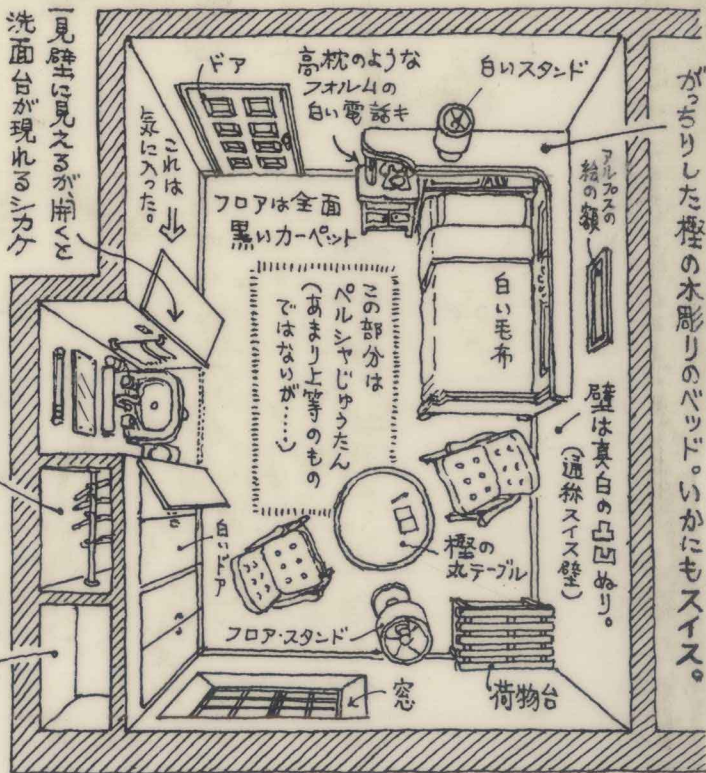 がっちりした樫の木彫りのベッド。いかにもスイス。
白いスタンド
アルプスの
絵の額
高枕のような
フォルムの
白い電話キ
ドア
これは
気に入った。
一見壁に見えるが、開くと
洗面台が現れるシカケ
フロアは全面
黒いカーペット
この部分は
ペルシャじゅうたん
(あまり上等のもの
ではないが……)
白い毛布
壁は真白の凸凹ぬり。
(通称スイス壁)
樫の
丸テーブル
白いドア
フロア・スタンド
窓
荷物台